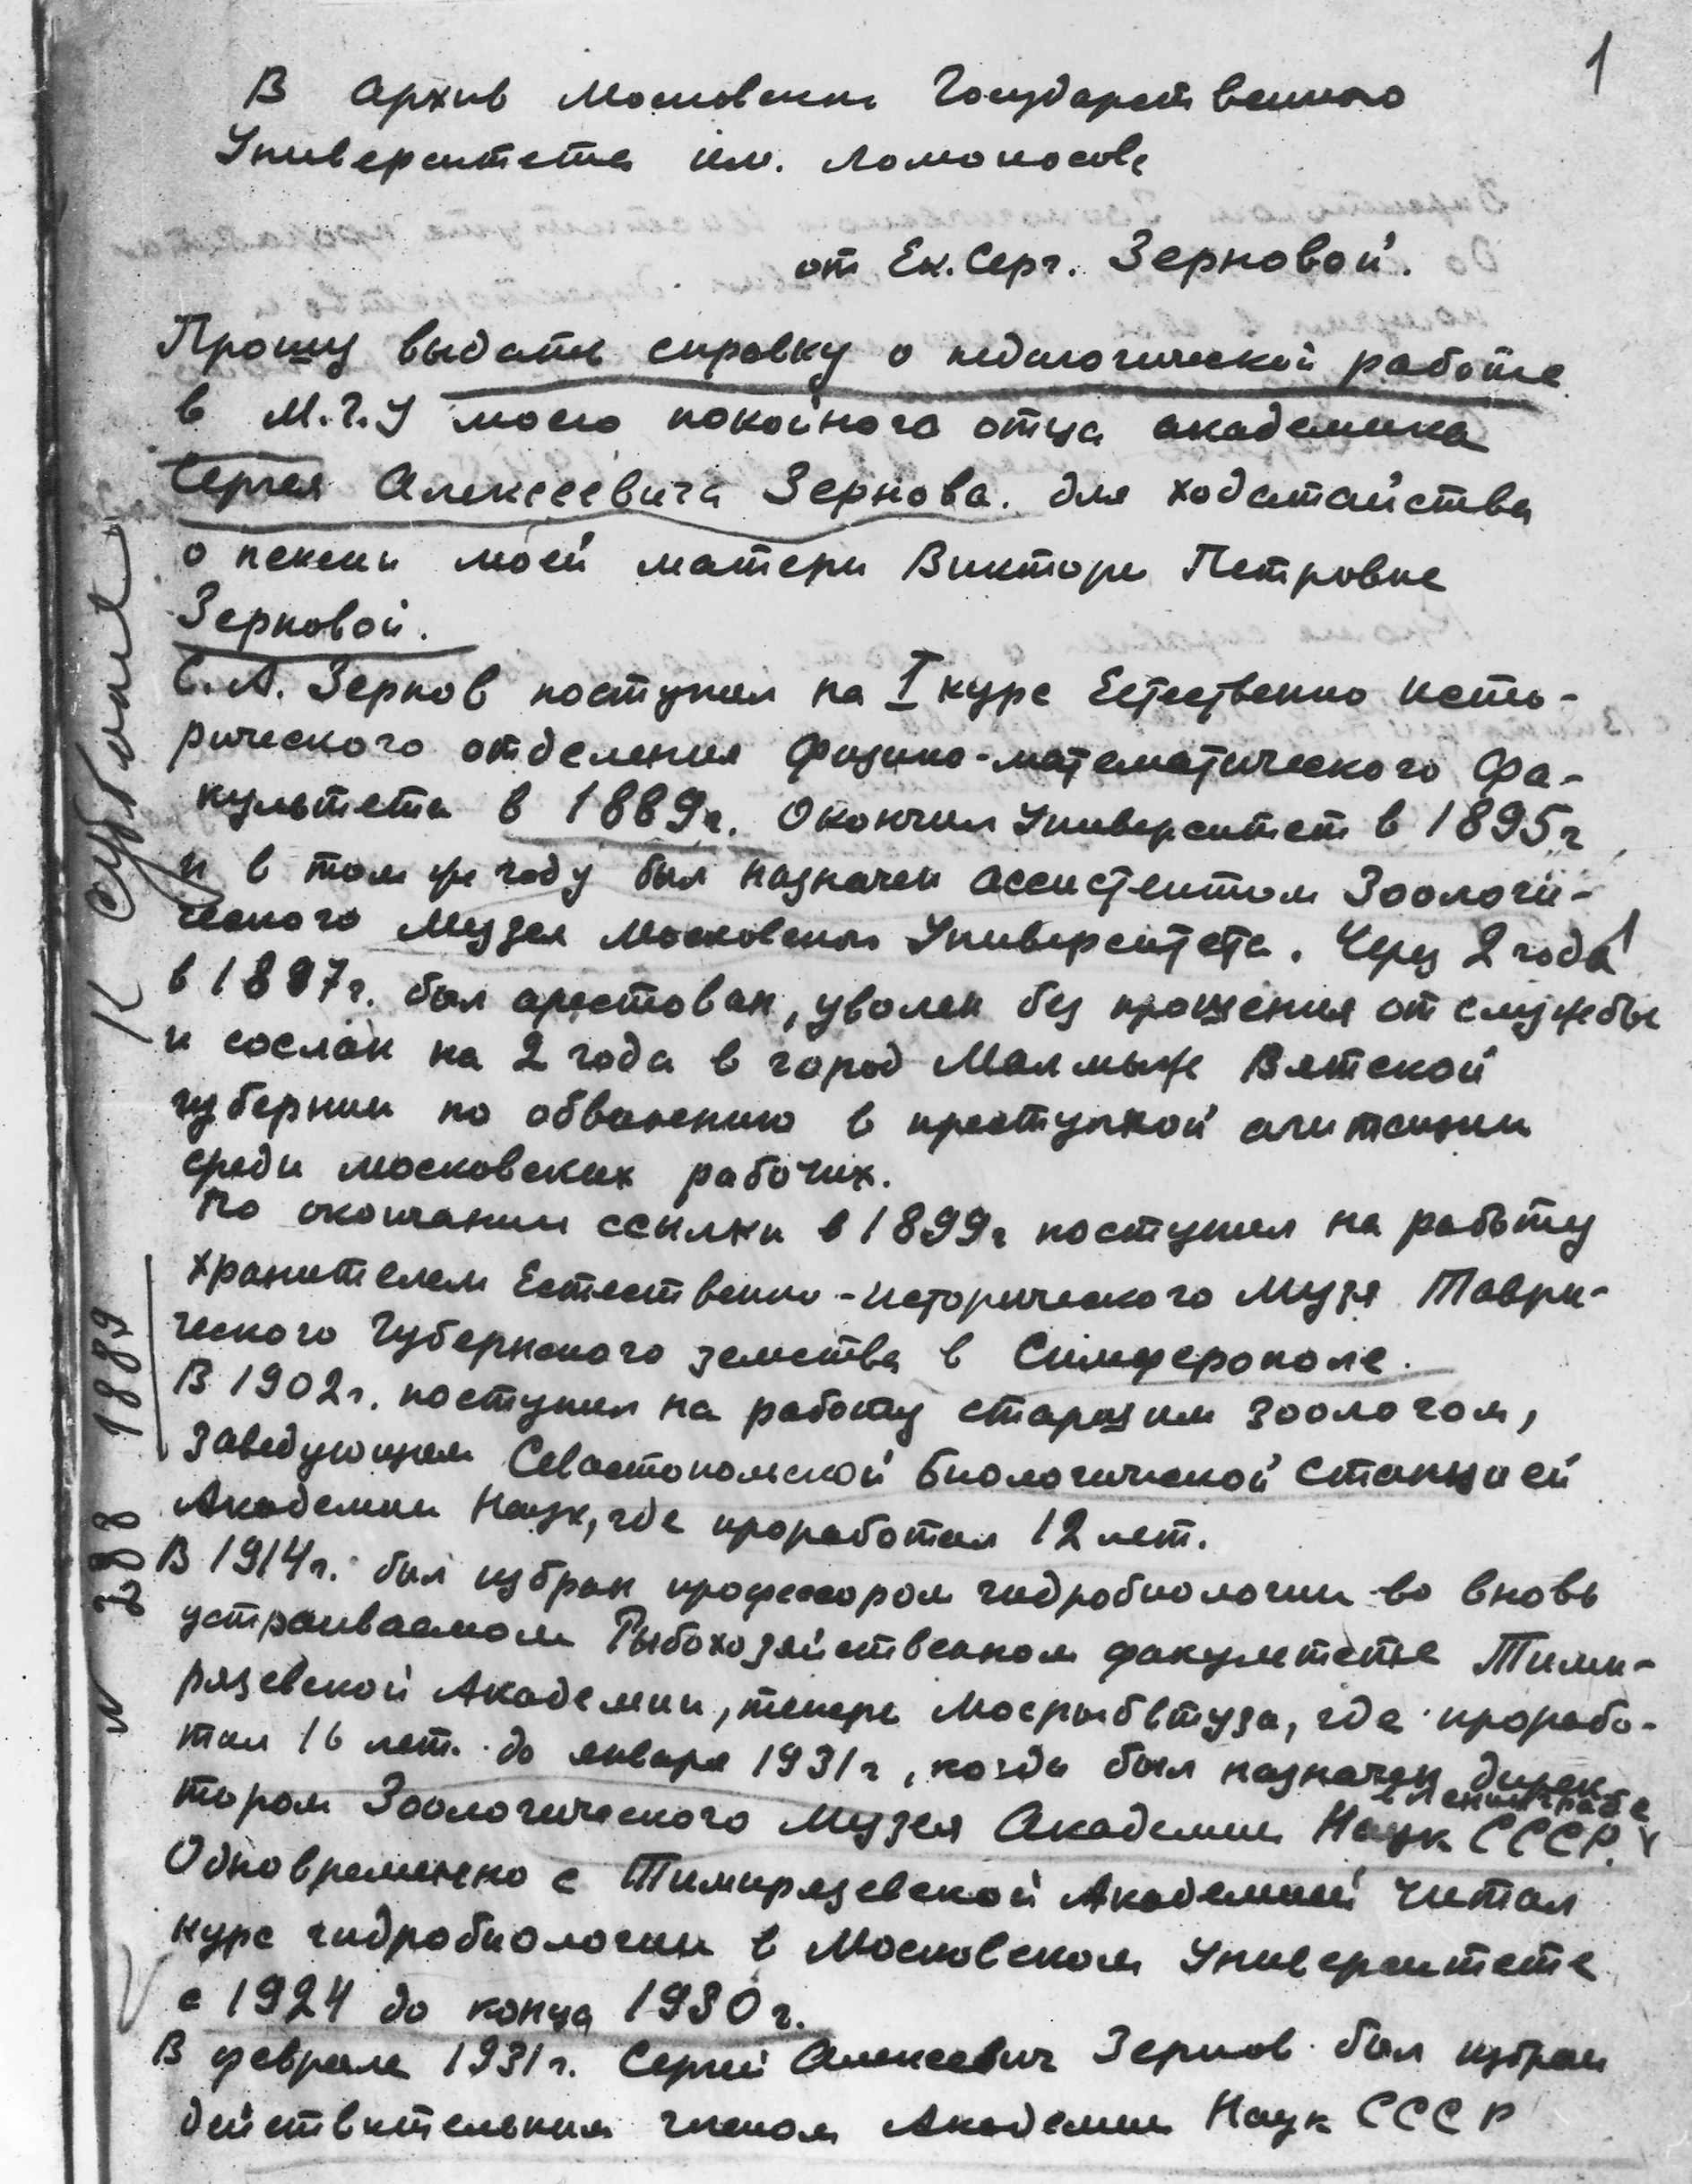 1
В архив Московского Государственного
Университета им. Ломоносова
от Ек. Серг. Зерновой.
Прошу выдать справку о педагогической работе
в М.Г.У моего покойного отца академика
Сергея Алексеевича Зернова. для ходатайства
о пенсии моей матери Виктори Петровне
Зерновой.
С.А. Зернов поступил на I курс Естественно исто-
рического отделения Физико-математического Фа-
культета в 1889г. Окончил Университет в 1895г
и в том же году был назначен ассистентом Зоологи-
ческого Музея Московского Университета. Через 2 года
в 1897г. был арестован, уволен без прошения от службы
и сослан на 2 года в город Малмыж Вятской
губернии по обвинению в преступной агитации
среди московских рабочих.
По окончании ссылки в 1899г поступил на работу
хранителем Естественно-исторического Музя Таври-
ческого Губернского земства в Симферополе.
В 1902г. поступил на работу старшим зоологом,
заведующим Севастопольской Биологической станцией
Академии Наук, где проработал 12 лет.
В 1914г. был избран профессором гидробиологии во вновь
устраиваемом Рыбохозяйственном факультете Тими-
рязевской Академии, теперь Мосрыбвтуза, где прорабо-
тал 16 лет. до января 1931г, когда был назначен дирек-
в Ленинграде
тором Зоологического Музея Академии Наук СССР.
Одновременно с Тимирязевской Академией читал
курс гидробиологии в Московском Университете
с 1924 до конца 1930г.
В феврале 1931г. Сергей Алексеевич Зернов был избран
действительным членом Академии Наук СССР
К субботе
288 1889